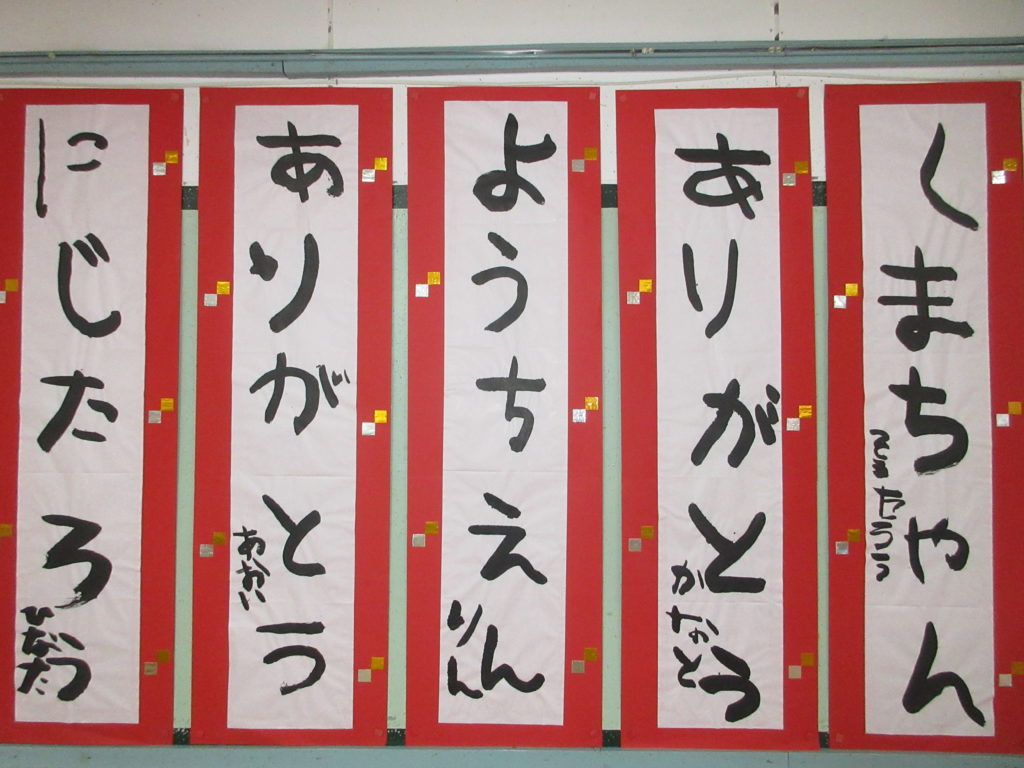 しまちゃん
ありがとう
かなと
ようちえん
りん
ありがとう
あおい
にじたろう
ひなた